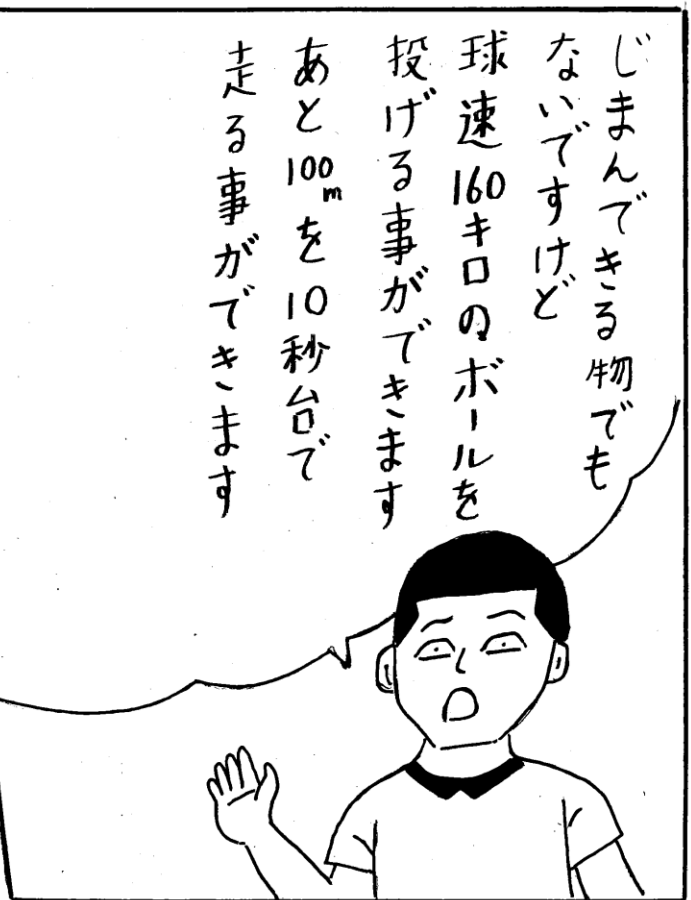 じまんできる物でも
ないですけど
球速160キロのボールを
投げる事ができます
あと100mを10秒台で
走る事ができます